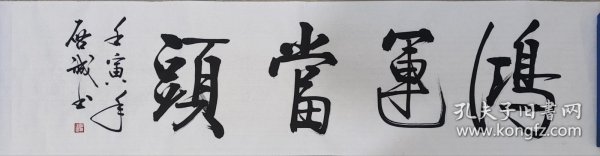 鴻運當頭
壬寅年
啟誠书
孔夫子旧书网
www.kongfz.com